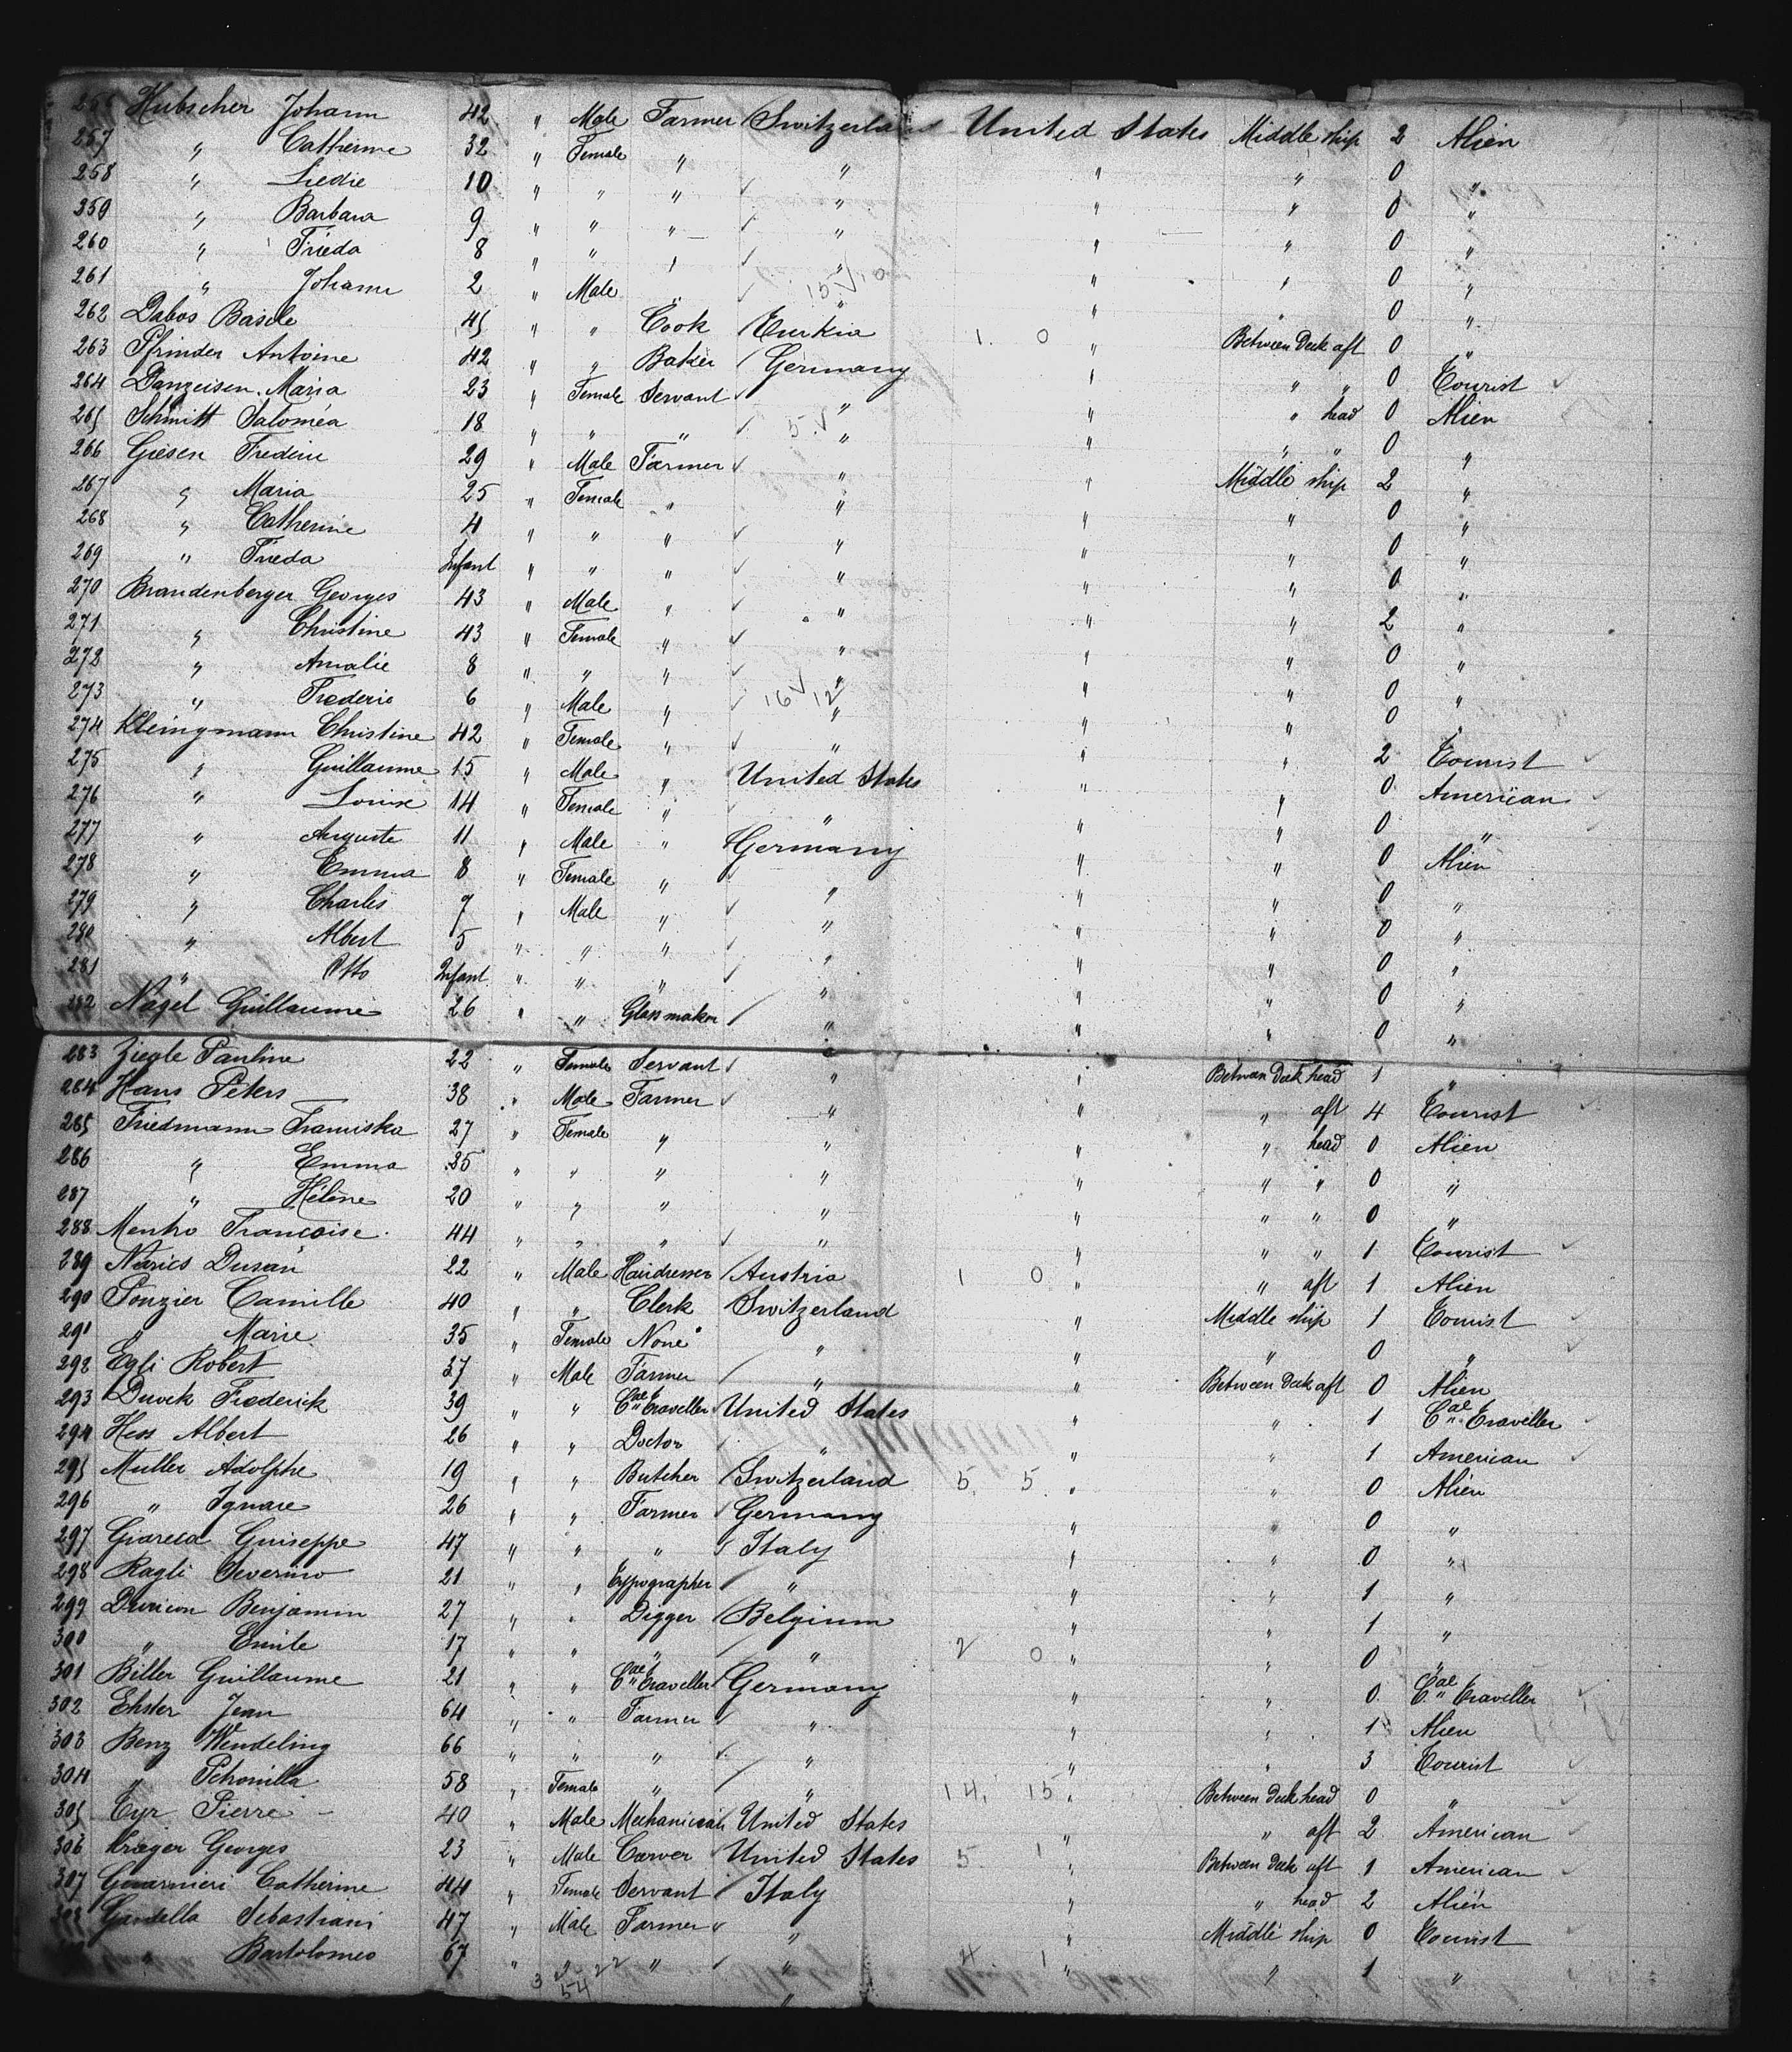 256 Hubscher Johann 42 " Male Farmer Switzerland United States Middle ship 2 Alien
257 " Catherine 32 " Female " " " " 0 "
258 " Liedie 10 " " " " " " 0 "
259 " Barbara 9 " " " " " " 0 "
260 " Frieda 8 " " " " " " 0 "
261 " Johann 2 " Male " " " " 0 "
262 Dabos Basile 45 " " Cook Turkia 1. 0 " Between Deck aft 0 "
263 Pfrinder Antoine 42 " " Baker Germany " " " 0 Tourist
264 Danzeisen Maria 23 " Female Servant " " " head 0 Alien
265 Schmitt Saloméa 18 " " " " " " " 0 "
266 Giesen Frederic 29 " Male Farmer " " Middle ship 2 "
267 " Maria 25 " Female " " " " 0 "
268 " Catherine 4 " " " " " " 0 "
269 " Frieda Infant " " " " " " 0 "
270 Brandenberger Georges 43 " Male " " " " 2 "
271 " Christine 43 " Female " " " " 0 "
272 " Amalie 8 " " " " " " 0 "
273 " Frederic 6 " Male " 16 12 " " " 0 "
274 Kleingmann Christine 42 " Female " " " " 2 Tourist
275 " Guillaume 15 " Male " United States " " 0 American
276 " Louise 14 " Female " " " " 0 "
277 " Auguste 11 " Male " Germany " " 0 Alien
278 " Emma 8 " Female " " " " 0 "
279 " Charles 7 " Male " " " " 0 "
280 " Albert 5 " " " " " " 0 "
281 " Otto Infant " " " " " " 0 "
282 Nagel Guillaume 26 " " Glass maker " " " 0 "
283 Ziegle Pauline 22 " Female Servant " " Between Deck head 1 "
284 Hans Peters 38 " Male Farmer " " " aft 4 Tourist
285 Friedmann Franciska 27 " Female " " " " head 0 Alien
286 " Emma 25 " " " " " " " 0 "
287 " Hélène 20 " " " " " " " 0 "
288 Mentro Francoise 44 " " " " " " " 1 Tourist
289 Narics Dusan 22 " Male Hairdresser Austria 1 0 " " aft 1 Alien
290 Ponzier Camille 40 " " Clerk Switzerland " Middle ship 1 Tourist
291 " Marie 35 " Female None " " " 0 "
292 Egli Robert 37 " Male Farmer " " Between Deck aft 0 Alien
293 Duvek Frederick 39 " " Cal Traveller United States " " 1 Cal Traveller
294 Hess Albert 26 " " Doctor " " " 1 American
295 Muller Adolphe 19 " " Butcher Switzerland 5. 5. " " 0 Alien
296 " Ignace 26 " " Farmer Germany " " 0 "
297 Giareca Guiseppe 47 " " " Italy " " 0 "
298 Ragli Severino 21 " " Typographer " " " 1 "
299 Duvicon Benjamin 27 " " Digger Belgium " " 1 "
300 " Emile 17 " " " " 2 0 " " 0 "
301 Biller Guillaume 21 " " Cal Traveller Germany " " 0. Cal Traveller
302 Ehster Jean 64 " " Farmer " " " 1 Alien
303 Benz Wendeling 66 " " " " " " 3 Tourist
304 " Petronilla 58 " Female " " 14. 15 " Between Deck head 0 "
305 Cyr Pierre 40 " Male Mechanician United States " " aft 2 American
306 Kraeger Georges 23 " Male Carver United States 5. 1 " Between Deck aft 1 American
307 Guarnieri Catherine 44 " Female Servant Italy " " head 2 Alien
308 Gardella Sebastiani 47 " Male Farmer " " Middle ship 0 Tourist
" Bartolomeo 67 " " " 4 1 " " 1 "
54